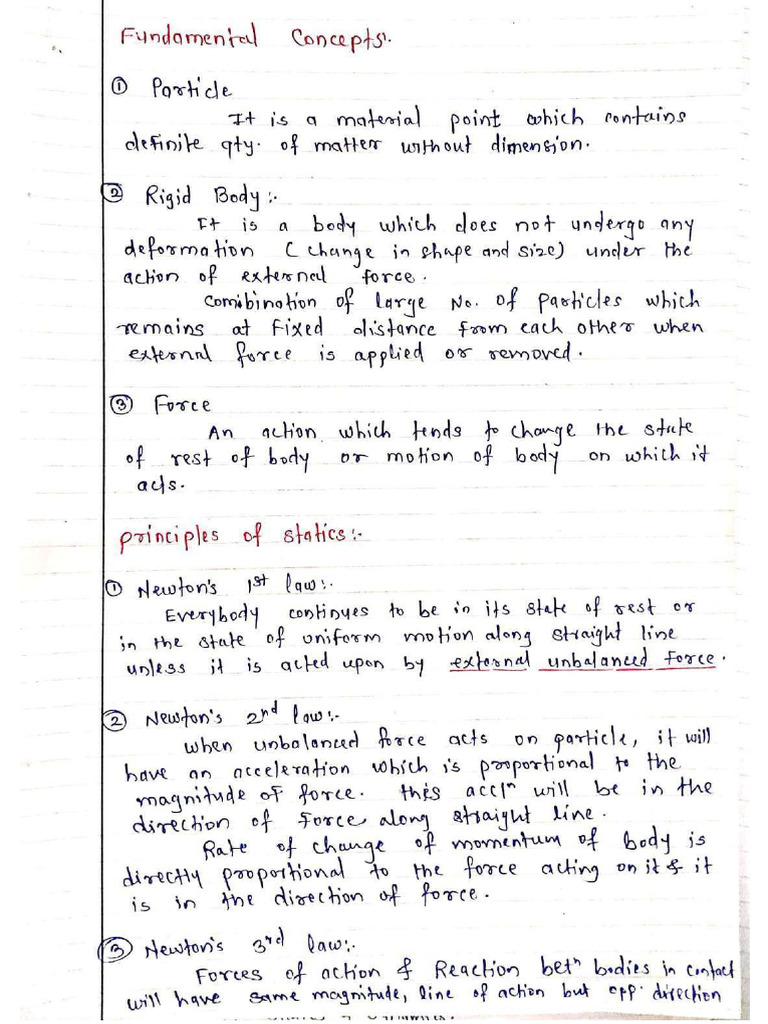 Fundamental Concepts:-
① Particle
It is a material point which contains
definite qty. of matter without dimension.
② Rigid Body:-
It is a body which does not undergo any
deformation (change in shape and size) under the
action of external force.
Combination of large No. of particles which
remains at fixed distance from each other when
external force is applied or removed.
③ Force
An action which tends to change the state
of rest of body or motion of body on which it
acts.
Principles of statics:-
① Newton's 1st law:-
Everybody continues to be in its state of rest or
in the state of uniform motion along straight line
unless it is acted upon by external unbalanced force.
② Newton's 2nd law:-
When unbalanced force acts on particle, it will
have an acceleration which is proportional to the
magnitude of force. this accln will be in the
direction of force along straight line.
Rate of change of momentum of body is
directly proportional to the force acting on it & it
is in the direction of force.
③ Newton's 3rd law:-
Forces of action & Reaction betn bodies in contact
will have same magnitude, line of action but opp. direction